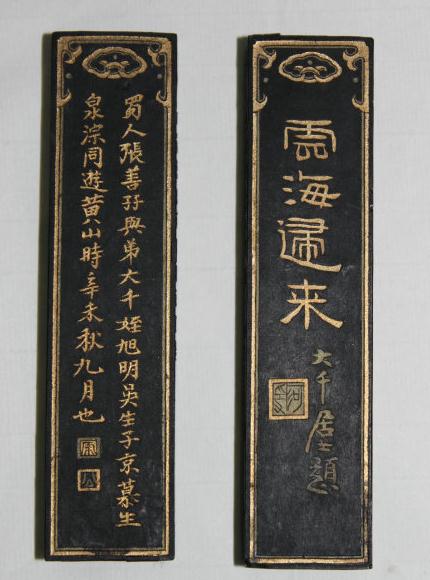 雲海歸来
大千居士題
蜀人張善孖與弟大千姪旭明吳生子京慕生
泉淙同遊黄山時辛未秋九月也